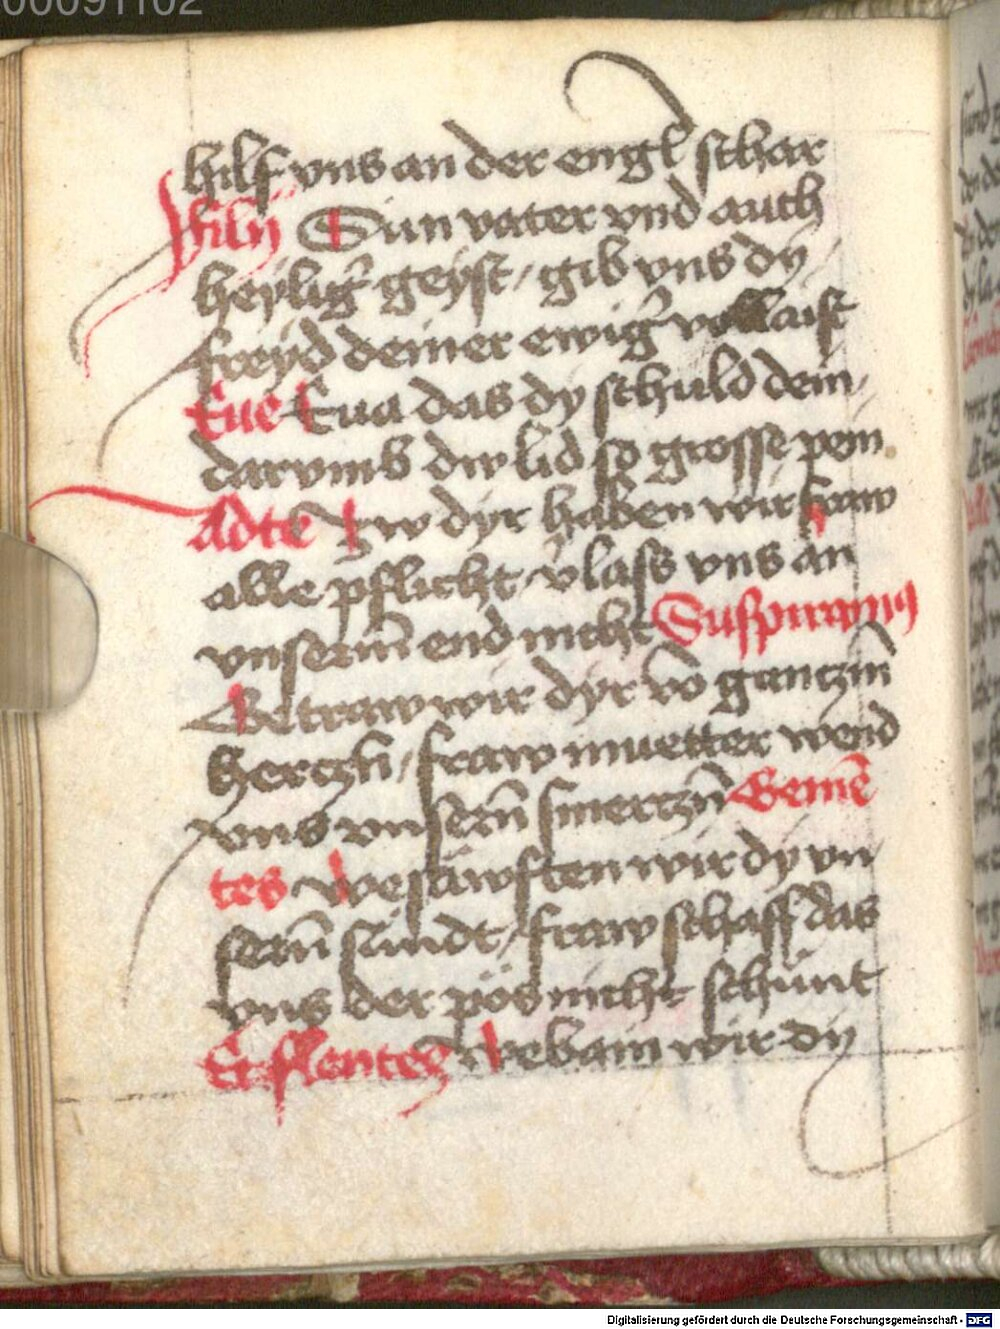 00091102
hilf vns an der engl schar
filÿ Sun vater vnd auch
heÿlig geÿst / gib vns dÿ
freÿd deiner ewig vollaist
Eue Eua das dÿ schuld dein /
darvmb dw lid so grosse pein
Adte zw dyr haben wir fraw
alle pflicht vlass vns an
vnserm end nicht Suspiramus
Getraw wir dyr vō gantzm
hertzn / fraw muetter wend
vns vnsern smertzn Gemē
tes wir dy vn
sern sündt / fraw schaff das
vns der pös nicht schünt
Et flentes webain wir dÿ
Digitalisierung gefördert durch die Deutsche Forschungsgemeinschaft - DFG